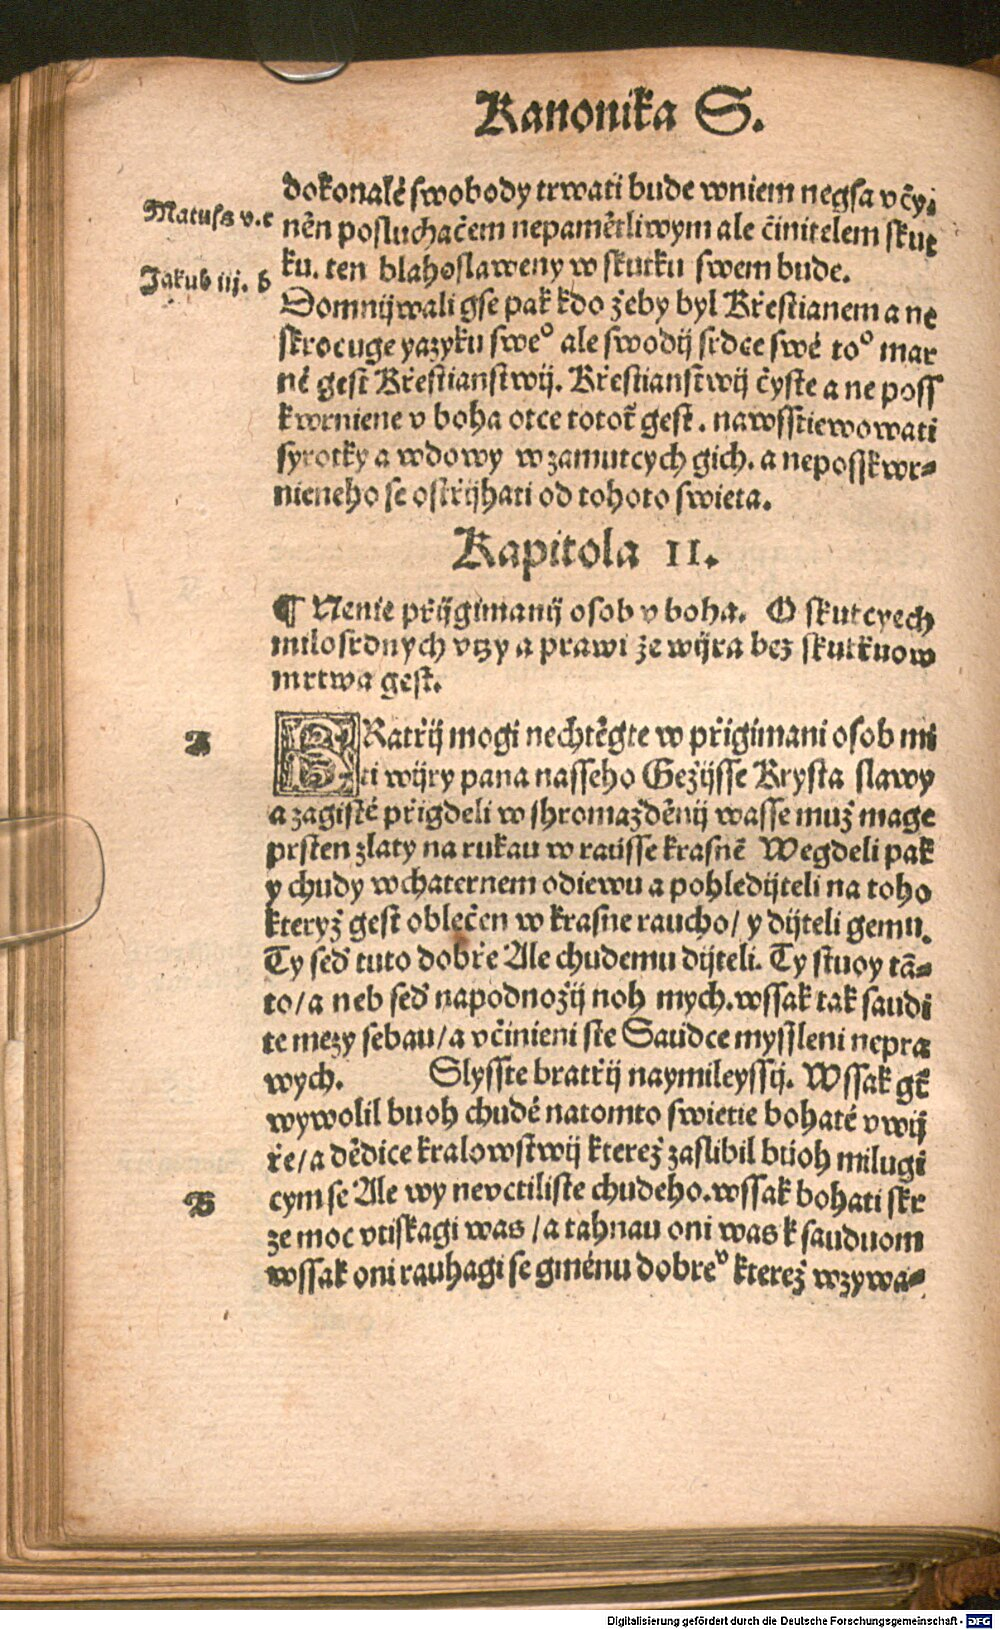 Kanonika S.
dokonalé swobody trwati bude wniem negsa včyi
Matuss v.c
nēn posluchačem nepamētliwym ale činitelem skut
ku. ten blahoslaweny w skutku swem bude.
Jakub iij. b
Domnijwali gse pak kdo žeby byl Křestianem a ne
skrocuge yazyku sweº ale swodij srdce swé toº mar
né gest Křestianstwij. Křestianstwij čyste a ne poss
kwrniene v boha otce totoť gest. nawsstiewowati
syrotky a wdowy w zamutcych gich. a neposskwr=
nieneho se ostřijhati od tohoto swieta.
Kapitola II.
¶ Nenie přijgimanij osob v boha. O skutcyech
milosrdnych vczy a prawi že wijra bez skutkuow
mrtwa gest.
A
BRatřij mogi nechtēgte w přigimani osob mi
ti wijry pana nasseho Gežijsse Krysta slawy
a zagisté přigdeli w shromaždēnij wasse muž mage
prsten zlaty na rukau w rausse krasnē Wegdeli pak
y chudy wchaternem odiewu a pohledijteli na toho
kteryž gest oblečen w krasne raucho/ y dijteli gemu.
Ty seď tuto dobře Ale chudemu dijteli. Ty stuoy tā=
to/ a neb seď napodnožij noh mych. wssak tak saudi
te mezy sebau/ a včinieni ste Saudce myssleni nepra
wych. Slysste bratřij naymileyssij. Wssak gť
wywolil buoh chudé natomto swietie bohaté v wij
ře/ a dēdice kralowstwij kterež zaslibil buoh milugi
B
cym se Ale wy nevctiliste chudeho. wssak bohati skr
ze moc vtiskagi was / a tahnau oni was k sauduom
wssak oni rauhagi se gménu dobreº kterež wzywa=
Digitalisierung gefördert durch die Deutsche Forschungsgemeinschaft - DFG